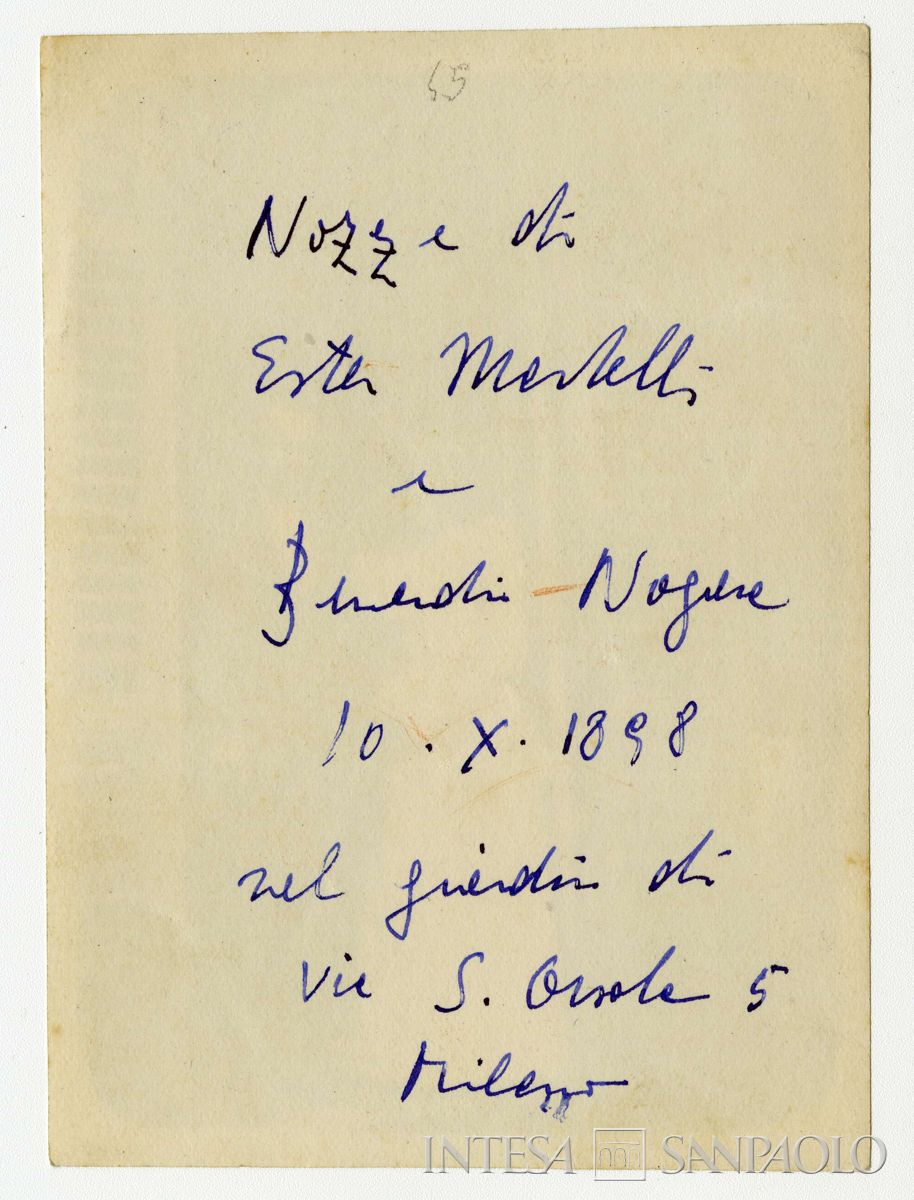 45
Nozze di
Ester Martelli
e
Bernardino Nogara
10.X.1898
nel giardino di
Via S. Orsola 5
Milano
INTESA SANPAOLO